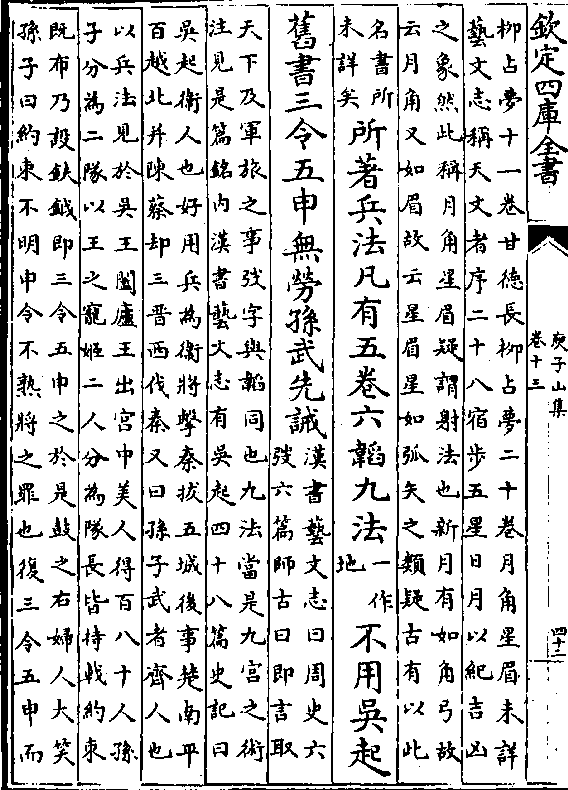 欽定四庫全書
庾子山集
卷十三
四十二
柳占夢十一卷甘德長柳占夢二十卷月角星眉未詳
藝文志稱天文者序二十八宿步五星日月以紀吉凶
之象然此稱月角星眉疑謂射法也新月有如角弓故
云月角又如眉故云星眉星如弧矢之類疑古有以此
名書所
未詳矣
所著兵法凡有五卷六韜九法
一作
地
不用吳起
舊書三令五申無勞孫武先誡
漢書藝文志曰周史六
弢六篇師古曰即言取
天下及軍旅之事弢字與韜同也九法當是九宮之術
注見是篇銘內漢書藝文志有吳起四十八篇史記曰
吳起衛人也好用兵為衛將擊秦拔五城後事楚南平
百越北并陳蔡却三晉西伐秦又曰孫子武者齊人也
以兵法見於吳王闔廬王出宮中美人得百八十人孫
子分為二隊以王之寵姬二人分為隊長皆持戟約束
既布乃設鈇鉞即三令五申之於是鼓之右婦人大笑
孫子曰約束不明申令不熟將之罪也復三令五申而